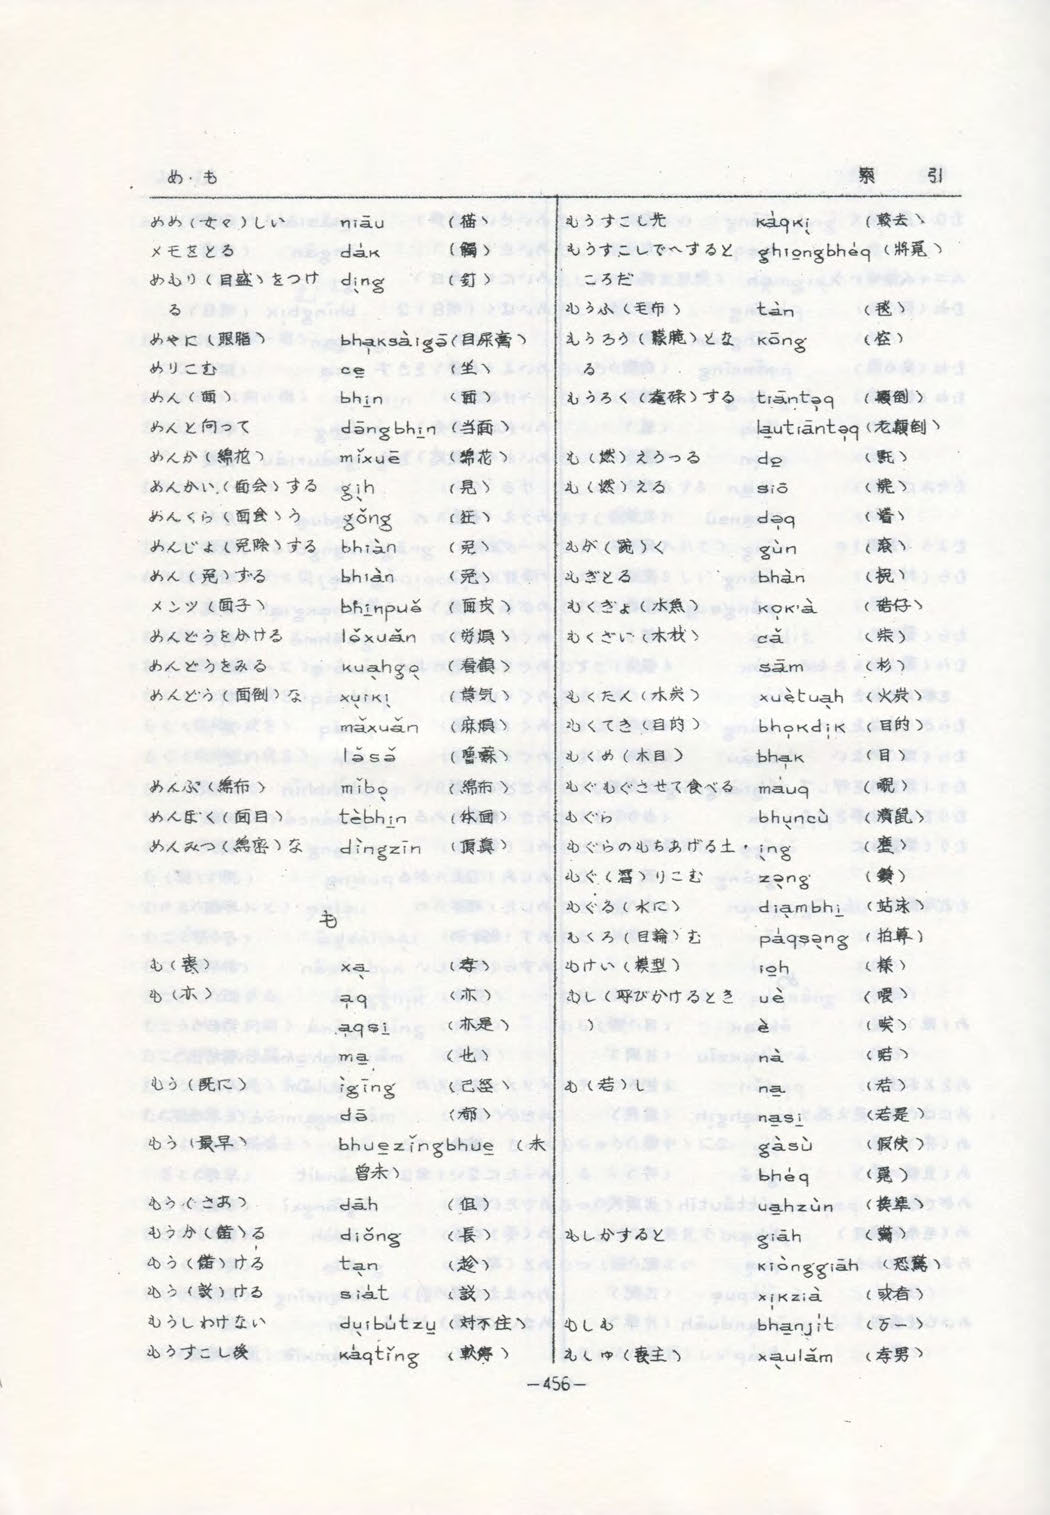 め・も
索 引
めめ(女々)しい niāu (猫)
メモをとる dák (觸)
めもり(目盛)をつけ dịng (釘)
る
めやに(眼脂) bhạksàigə̄ (目屎膏)
めりこむ cẹ (坐)
めん(面) bhịn (面)
めんと向って dāngbhịn (当面)
めんか(綿花) mǐxuē (綿花)
めんかい(面会)する gịh (見)
めんくら(面食)う gǒng (狂)
めんじょ(免除)する bhiàn (免)
めん(免)ずる bhiàn (免)
メンツ(面子) bhịnpuě (面皮)
めんどうをかける lə̌xuǎn (労煩)
めんどうをみる kuạhgọ (看顧)
めんどう(面倒)な xụikị (費気)
mǎxuǎn (麻煩)
lə̌sə̌
めんぷ(綿布) mǐbọ (綿布)
めんぼく(面目) tèbhịn (体面)
めんみつ(綿密)な dìngzīn (頂真)
も
も(喪) xạ (孝)
も(亦) ạq (亦)
ạqsị (亦是)
mạ (也)
もう(既に) ìgīng (已経)
dā (都)
もう(最早) bhuẹzǐngbhuẹ (未
曾未)
もうぐさあ) dāh (但)
もうか(儲)る diǒng (長)
もう(儲)ける tạn (趁)
もう(設)ける siát (設)
もうしわけない dụibútzụ (対不住)
もうすこし後 káqtǐng (較停)
もうすこし先 kàqkị (較去)
もうすこしで〜すると ghiọngbhéq (將覓)
ころだ
もうふ(毛布) tàn (毯)
もうろう(朦朧)とな kōng (悾)
る
もうろく(耄碌)する tiāntə̣q (顛倒)
lạutiāntə̣q (老顛倒)
も(燃)えうつる dọ
も(燃)える siō (燒)
də̣q (着)
もが(踠)く gùn (滾)
もぎとる bhàn
もくぎょ(木魚) kọk'à (硞仔)
もくざい(木材) cǎ (柴)
sām (杉)
もくたん(木炭) xuètuạh (火炭)
もくてき(目的) bhọkdịk (目的)
もくめ(木目) bhạk (目)
もぐもぐさせて食べる máuq
もぐら bhụncù
もぐらのもちあげる土 ịng
もぐ(潜)りこむ zə̣ng (鑽)
もぐる(水に) diạmbhị
もくろ(目論)む páqsə̣ng
もけい(模型) iọh (様)
もし(呼びかけるとき uè (喂)
) è (唉)
nà
も(若)し nạ (若)
nạsị (若是)
gàsù (假使)
bhéq (覓)
uạhzùn (換準)
もしかすると giāh (驚)
kiònggiāh (恐驚)
xịkzià (或有)
もしも bhạnjít (万一)
もしゅ(喪主) xạulǎm (孝男)
—456—